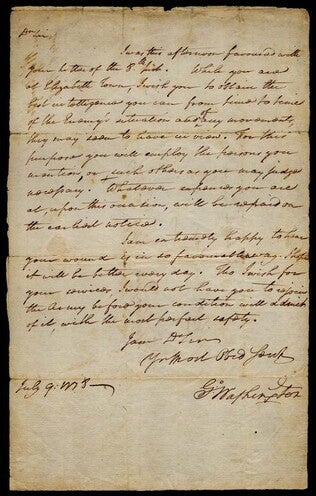 Dr Sir,
I was this afternoon favoured with
your letter of the 8th Inst. While you are
at Elizabeth Town, I wish you to obtain the
best intelligence you can from time to time
of the Enemy's situation and any movements
they may seem to have in view. For this
purpose you will employ the persons you
mention, or such others as you may judge
necessary. Whatever expences you are
at, upon this occasion, will be repaid on
the earliest notice.
I am extremely happy to hear
your wound is in so favourable a way. I hope
it will be better every day. Tho I wish for
your services I would not have you to rejoin
the Army before your condition will admit
of it, with the most perfect safety.
I am Dr Sir
Yr Most Obed Servt
Go Washington
July 9. 1778